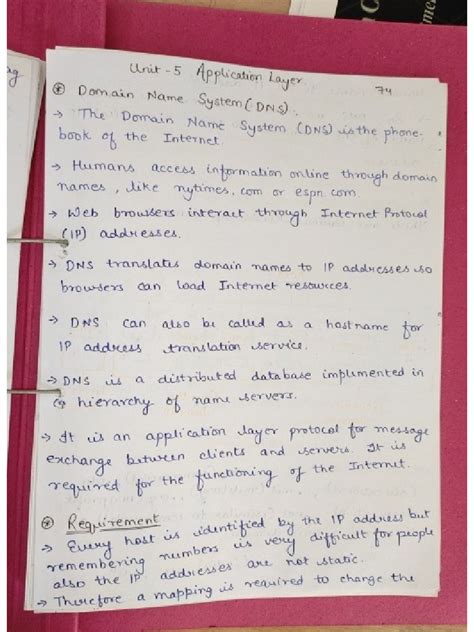 Unit - 5 Application Layer
74
⊛ Domain Name System (DNS).
→ The Domain Name System (DNS) is the phone-
book of the Internet
→ Humans access information online through domain
names, like nytimes.com or espn.com.
→ Web browsers interact through Internet Protocol
(IP) addresses.
→ DNS translates domain names to IP addresses so
browsers can load Internet resources.
→ DNS can also be called as a hostname for
IP address translation service.
→ DNS is a distributed database implimented in
hierarchy of name servers.
→ It is an application layer protocol for message
exchange between clients and servers. It is
required for the functioning of the Internet.
⊛ Requirement
→ Every host is identified by the IP address but
remembering numbers is very difficult for people
also the IP addresses are not static.
→ Therefore a mapping is required to change the